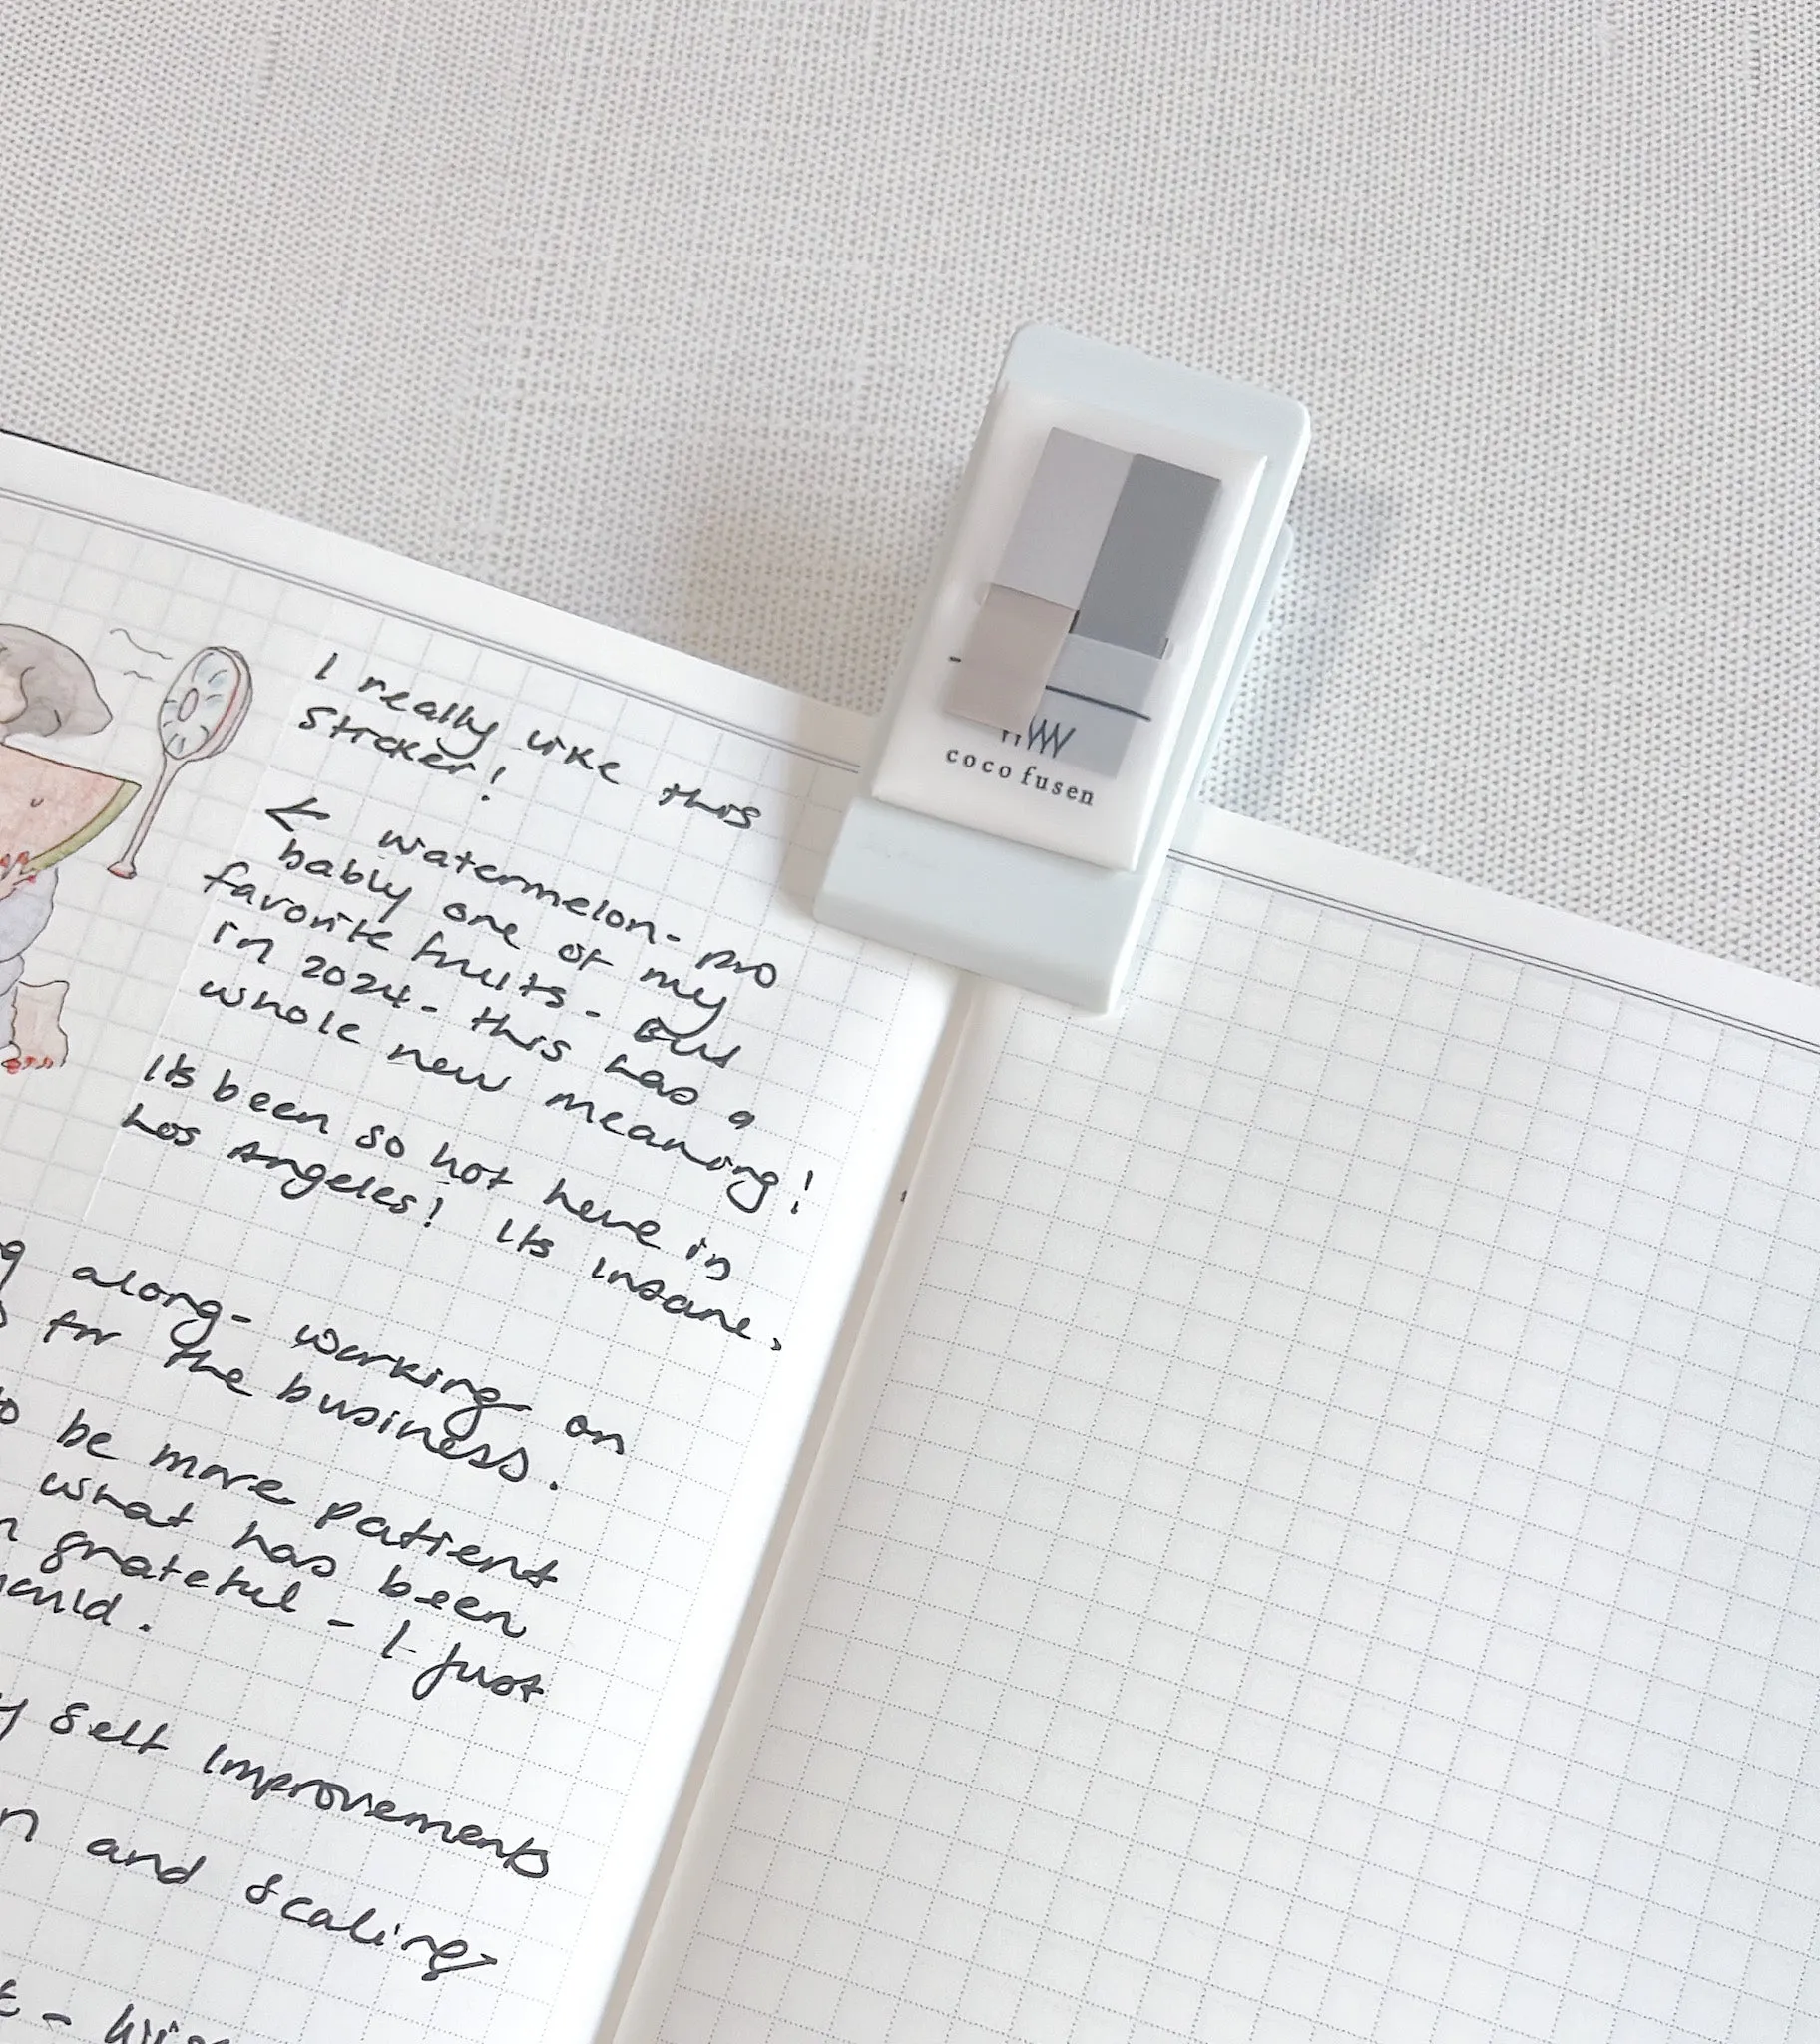 I really like this
sticker!
← watermelon - pro
bably one of my
favorite fruits - But
in 2024 - this has a
whole new meaning!
Its been so hot here in
Los Angeles! Its insane.
along - working on
for the business.
to be more patient
what has been
grateful - I just
.
self improvements
and scaling
coco fusen